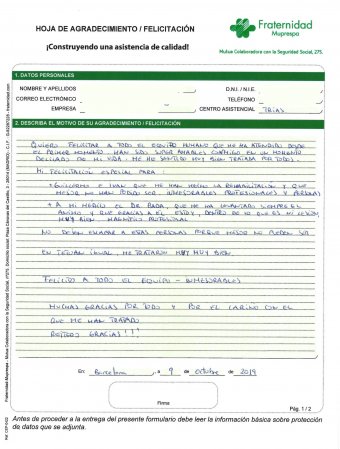 HOJA DE AGRADECIMIENTO / FELICITACIÓN
¡Construyendo una asistencia de calidad!
Fraternidad
Muprespa
Mutua Colaboradora con la Seguridad Social, 275.
1. DATOS PERSONALES
NOMBRE Y APELLIDOS
D.N.I. / N.I.E.
CORREO ELECTRÓNICO
TELÉFONO
EMPRESA
CENTRO ASISTENCIAL Trias
2. DESCRIBA EL MOTIVO DE SU AGRADECIMIENTO / FELICITACIÓN
QUIERO FELICITAR A TODO EL EQUIPO HUMANO QUE ME HA ATENDIDO DESDE
EL PRIMER MOMENTO. HAN SIDO SUPER AMABLES CONMIGO EN UN MOMENTO
DELICADO DE MI VIDA. ME HE SENTIDO MUY BIEN TRATADA POR TODOS.
MI FELICITACIÓN ESPECIAL PARA:
GUILLERMO E IVAN QUE ME HAN HECHO LA REHABILITACIÓN Y QUE
MEJOR NO HAN PODIDO INMEJORABLES PROFESIONALES Y PERSONAS
A MI MEDICO EL DR. RADA, QUE ME HA LEVANTADO SIEMPRE EL
ANIMO Y QUE GRACIAS A EL ESTOY, DENTRO DE LO QUE ES MI LESION
MUY BIEN - MAGNIFICO PROFESIONAL
NO DEJEN ESCAPAR A ESTAS PERSONAS PORQUE MEJOR NO PUEDEN SER
EN TETUAN IGUAL ME TRATARON MUY MUY BIEN.
FELICITO A TODO EL EQUIPO - INMEJORABLES
MUCHAS GRACIAS POR TODO Y POR EL CARIÑO CON EL
QUE ME HAN TRATADO
REITERO GRACIAS!!!
En Barcelona a 9 de Octubre de 2019
Firma
Pág. 1 / 2
Antes de proceder a la entrega del presente formulario debe leer la información básica sobre protección
de datos que se adjunta.